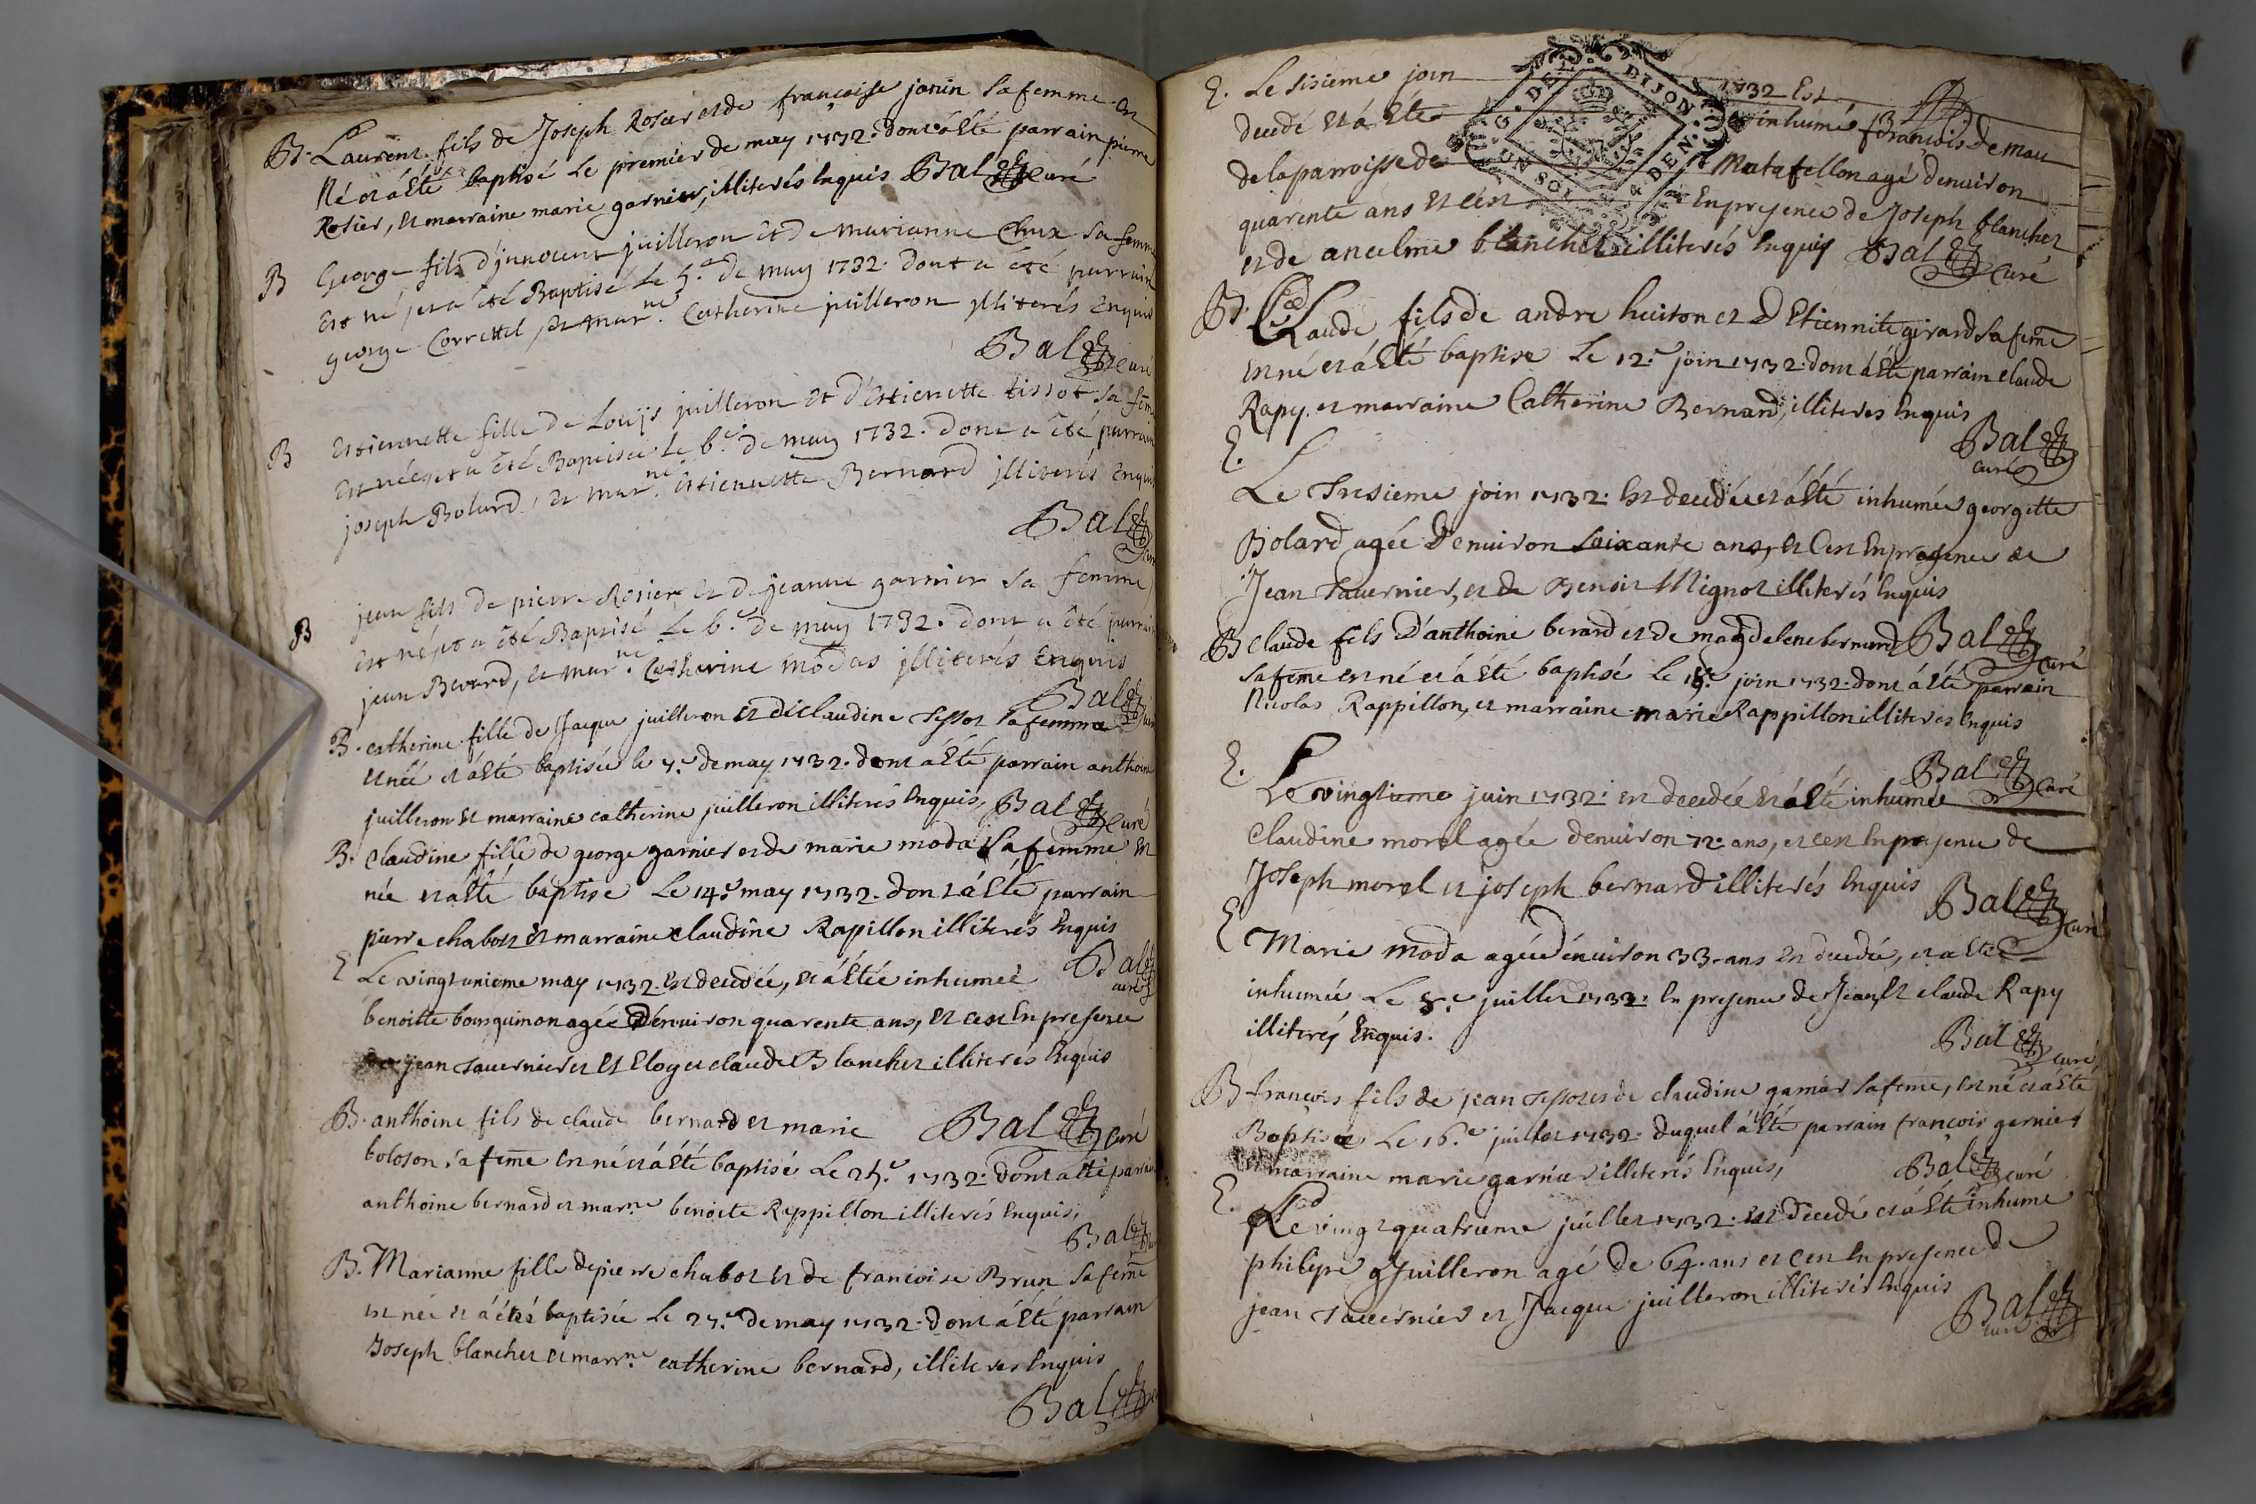 B. Laurent fils de Joseph Rosier et de françoise janin sa femme est
Né et á Eté baptisé Le premier de may 1732. dont á Eté parrain pierre
Rosier, et marraine marie garnier, illiterés Enquis Bal Curé
B George fils d'jnnocent juilleron et de marianne Chux sa femme
Est né jet a été Baptisé Le 5.e de may 1732. dont a été parrain
george Correttel, et mar.ne Catherine juilleron jlliterés Enquis
Bal Curé
B Estiennette fille de Louijs juilleron et d'Estiennette tissot sa fem̃e
Est née et a été Baptisée Le 6.e de may 1732. dont a été parrain
joseph Bolard, et mar.ne Estiennette Bernard jlliterés Enquis
Bal Curé
B jean fils de pierre Rosier et de jeanne garnier sa femme
Est né jet a été Baptisé Le 6.e de may 1732. dont a été parrain
jean Berard, et mar.ne Catherine modas jlliterés Enquis
Bal Curé
B. catherine fille de Jaque juilleron et de Claudine Tissot sa femme
et née et á Eté baptisée le 7.e de may 1732. dont á Eté parrain anthoine
juilleron et marraine catherine juilleron illiterés Enquis, Bal Curé
B. Claudine fille de george garnier et de marie moda sa femme est
née et a Eté baptise Le 14.e may 1732. dont á Eté parrain
pierre chabot et marraine claudine Rapillon illiterés Enquis
Bal curé
E Le vingtunieme may 1732. Est decedée, et á Etée inhumée
benoitte bourguinon agée d'énviron quarente ans, et cest En presence
de jean Tavernier et Eloy et claude Blanchet illiterés Enquis
B. anthoine fils de claude bernard et marie Bal Curé
boloson sa fem̃e est né et á Eté baptisé Le 25.e 1732. dont a Eté parrain
anthoine bernard et mar.ne benoite Rappillon illiterés Enquis,
Bal
B. Marianne fille de pierre chabot et de francoise Brun sa fem̃e
est née et á étés baptisée Le 27.e de may 1732. dont á Eté parrain
Joseph blanchet et marr.ne catherine bernard, illiteres Enquis
Bal
E. Le sisieme join 1732 Est
decedé et á Eté inhumé francois de mau
de la parroisse de Matafellon agé denviron
quarente ans et cést En presence de Joseph blanchet
et de ancelme blanchet illiterés Enquis Bal Curé
GEN. DE DIJON
B. Claude fils de andre huiton et d Etiennite girard sa fem̃e
est né et á Eté baptise Le 12.e join 1732. dont á Eté parrain claude
Rapy et marraine Catherine Bernard, illiteres Enquis
Bal curé
E.
Le Tresieme join 1732. Est decedée et á Eté inhumée georgette
Bolard agée d'environ soixante ans, et Cest En presence de
Jean Tavernier, et de Benoit Mignot illiterés Enquis
B Claude fils d'anthoine berard et de magdelene bernard Bal Curé
sa fem̃e est né et á Eté baptisé Le 18.e join 1732. dont á Eté parrain
Nicolas Rappillon, et marraine marie Rappillon illiteres Enquis
Bal Curé
E.
Le vingtieme juin 1732. est decedée et á Eté inhumée
Claudine morel agée denviron 72. ans, et cest En presence de
Joseph morel et joseph bernard illiterés Enquis
Bal Curé
E Marie moda agée d'énviron 33. ans est decedée, et a Eté
inhumée Le 8.e juillet 1732. En presence de Jean, et claude Rapy
illiterés Enquis.
Bal curé
B francois fils de jean Tissot et de claudine gamar sa fem̃e, est né et á Eté
Baptisé Le 16.e juillet 1732. duquel á Eté parrain francois garnier
et marraine marie garnier illiterés Enquis,
Bal curé
E.
Le vingt quatrieme juillet 1732. Est decedé et á Eté inhume
philipe Juilleron agé de 64. ans et cest En presence de
jean Tavernier et Jacque juilleron illiterés Enquis
Bal curé